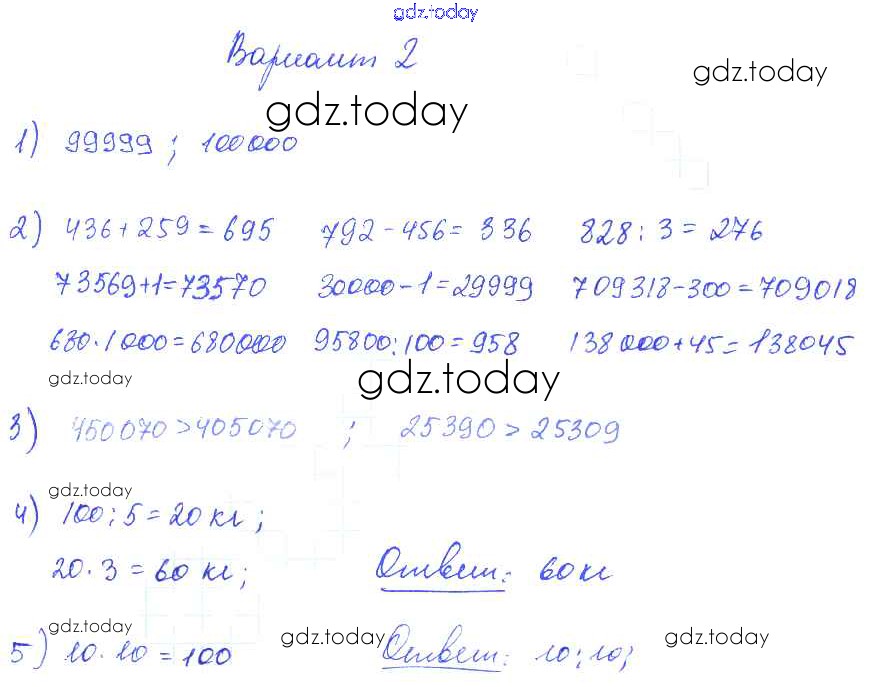 gdz.today
Вариант 2
gdz.today
gdz.today
1) 99999 ; 100000
2) 436 + 259 = 695 792 - 456 = 336 828 : 3 = 276
73569+1=73570 30000-1=29999 709318-300=709018
680·1000=680000 95800:100=958 138000+45=138045
gdz.today
gdz.today
3) 450070>405070 ; 25390 > 25309
gdz.today
4) 100 : 5 = 20 кг ;
20 · 3 = 60 кг ; Ответ: 60 кг
gdz.today
gdz.today
gdz.today
5) 10 · 10 = 100 Ответ: 10; 10;